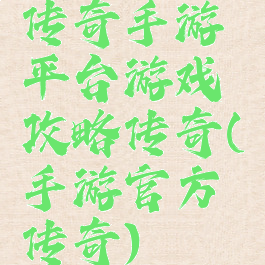 传奇手游
平台游戏
攻略传奇(
手游官方
传奇)